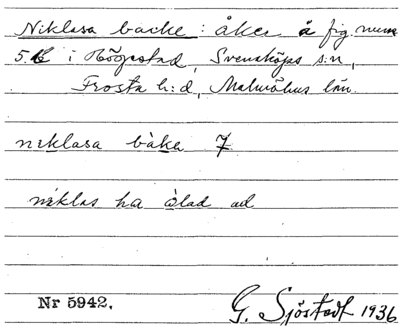 Niklasa backe: åker å fig. num
5. i Höögestad, Svensköps s:n,
Frosta h:d, Malmöhus län.
niklasa bàka 7
niklas ha àlad ad
Nr 5942.
G. Sjöstedt 1936